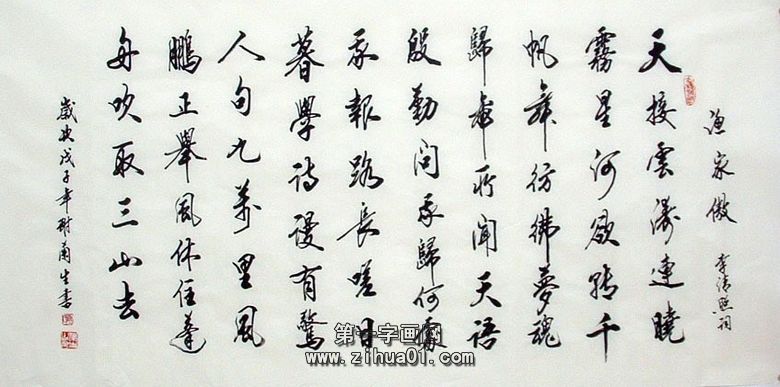 漁家傲 李清照詞
天接雲濤連曉
霧星河欲轉千
帆舞彷彿夢魂
歸帝所聞天語
殷勤問我歸何處
我報路長嗟日
暮學詩謾有驚
人句九萬里風
鵬正舉風休住蓬
舟吹取三山去
歲次戊子年 生書
第一字画网
www.zihua01.com